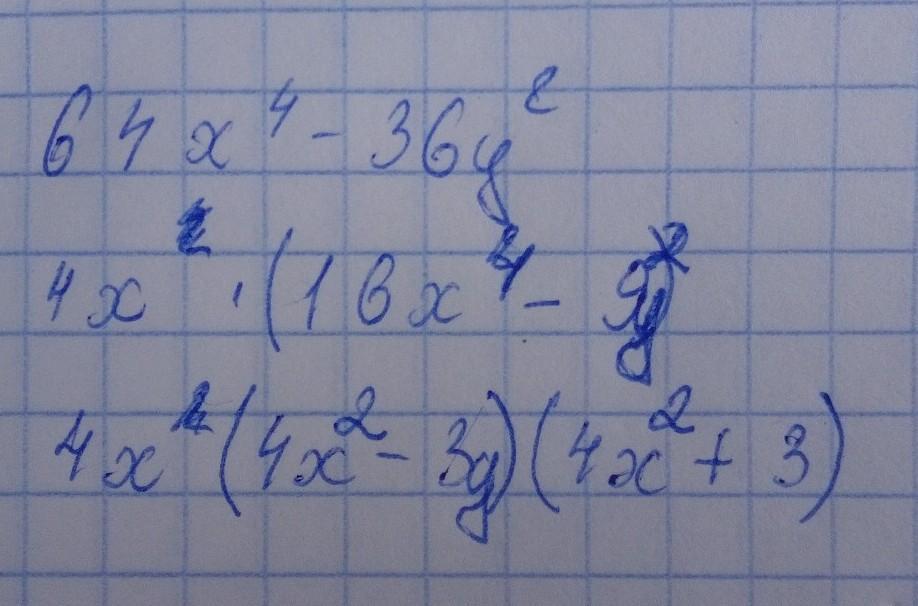 64x⁴ - 36y²
4x² · (16x⁴ - 9y²
4x² (4x² - 3y)(4x² + 3)